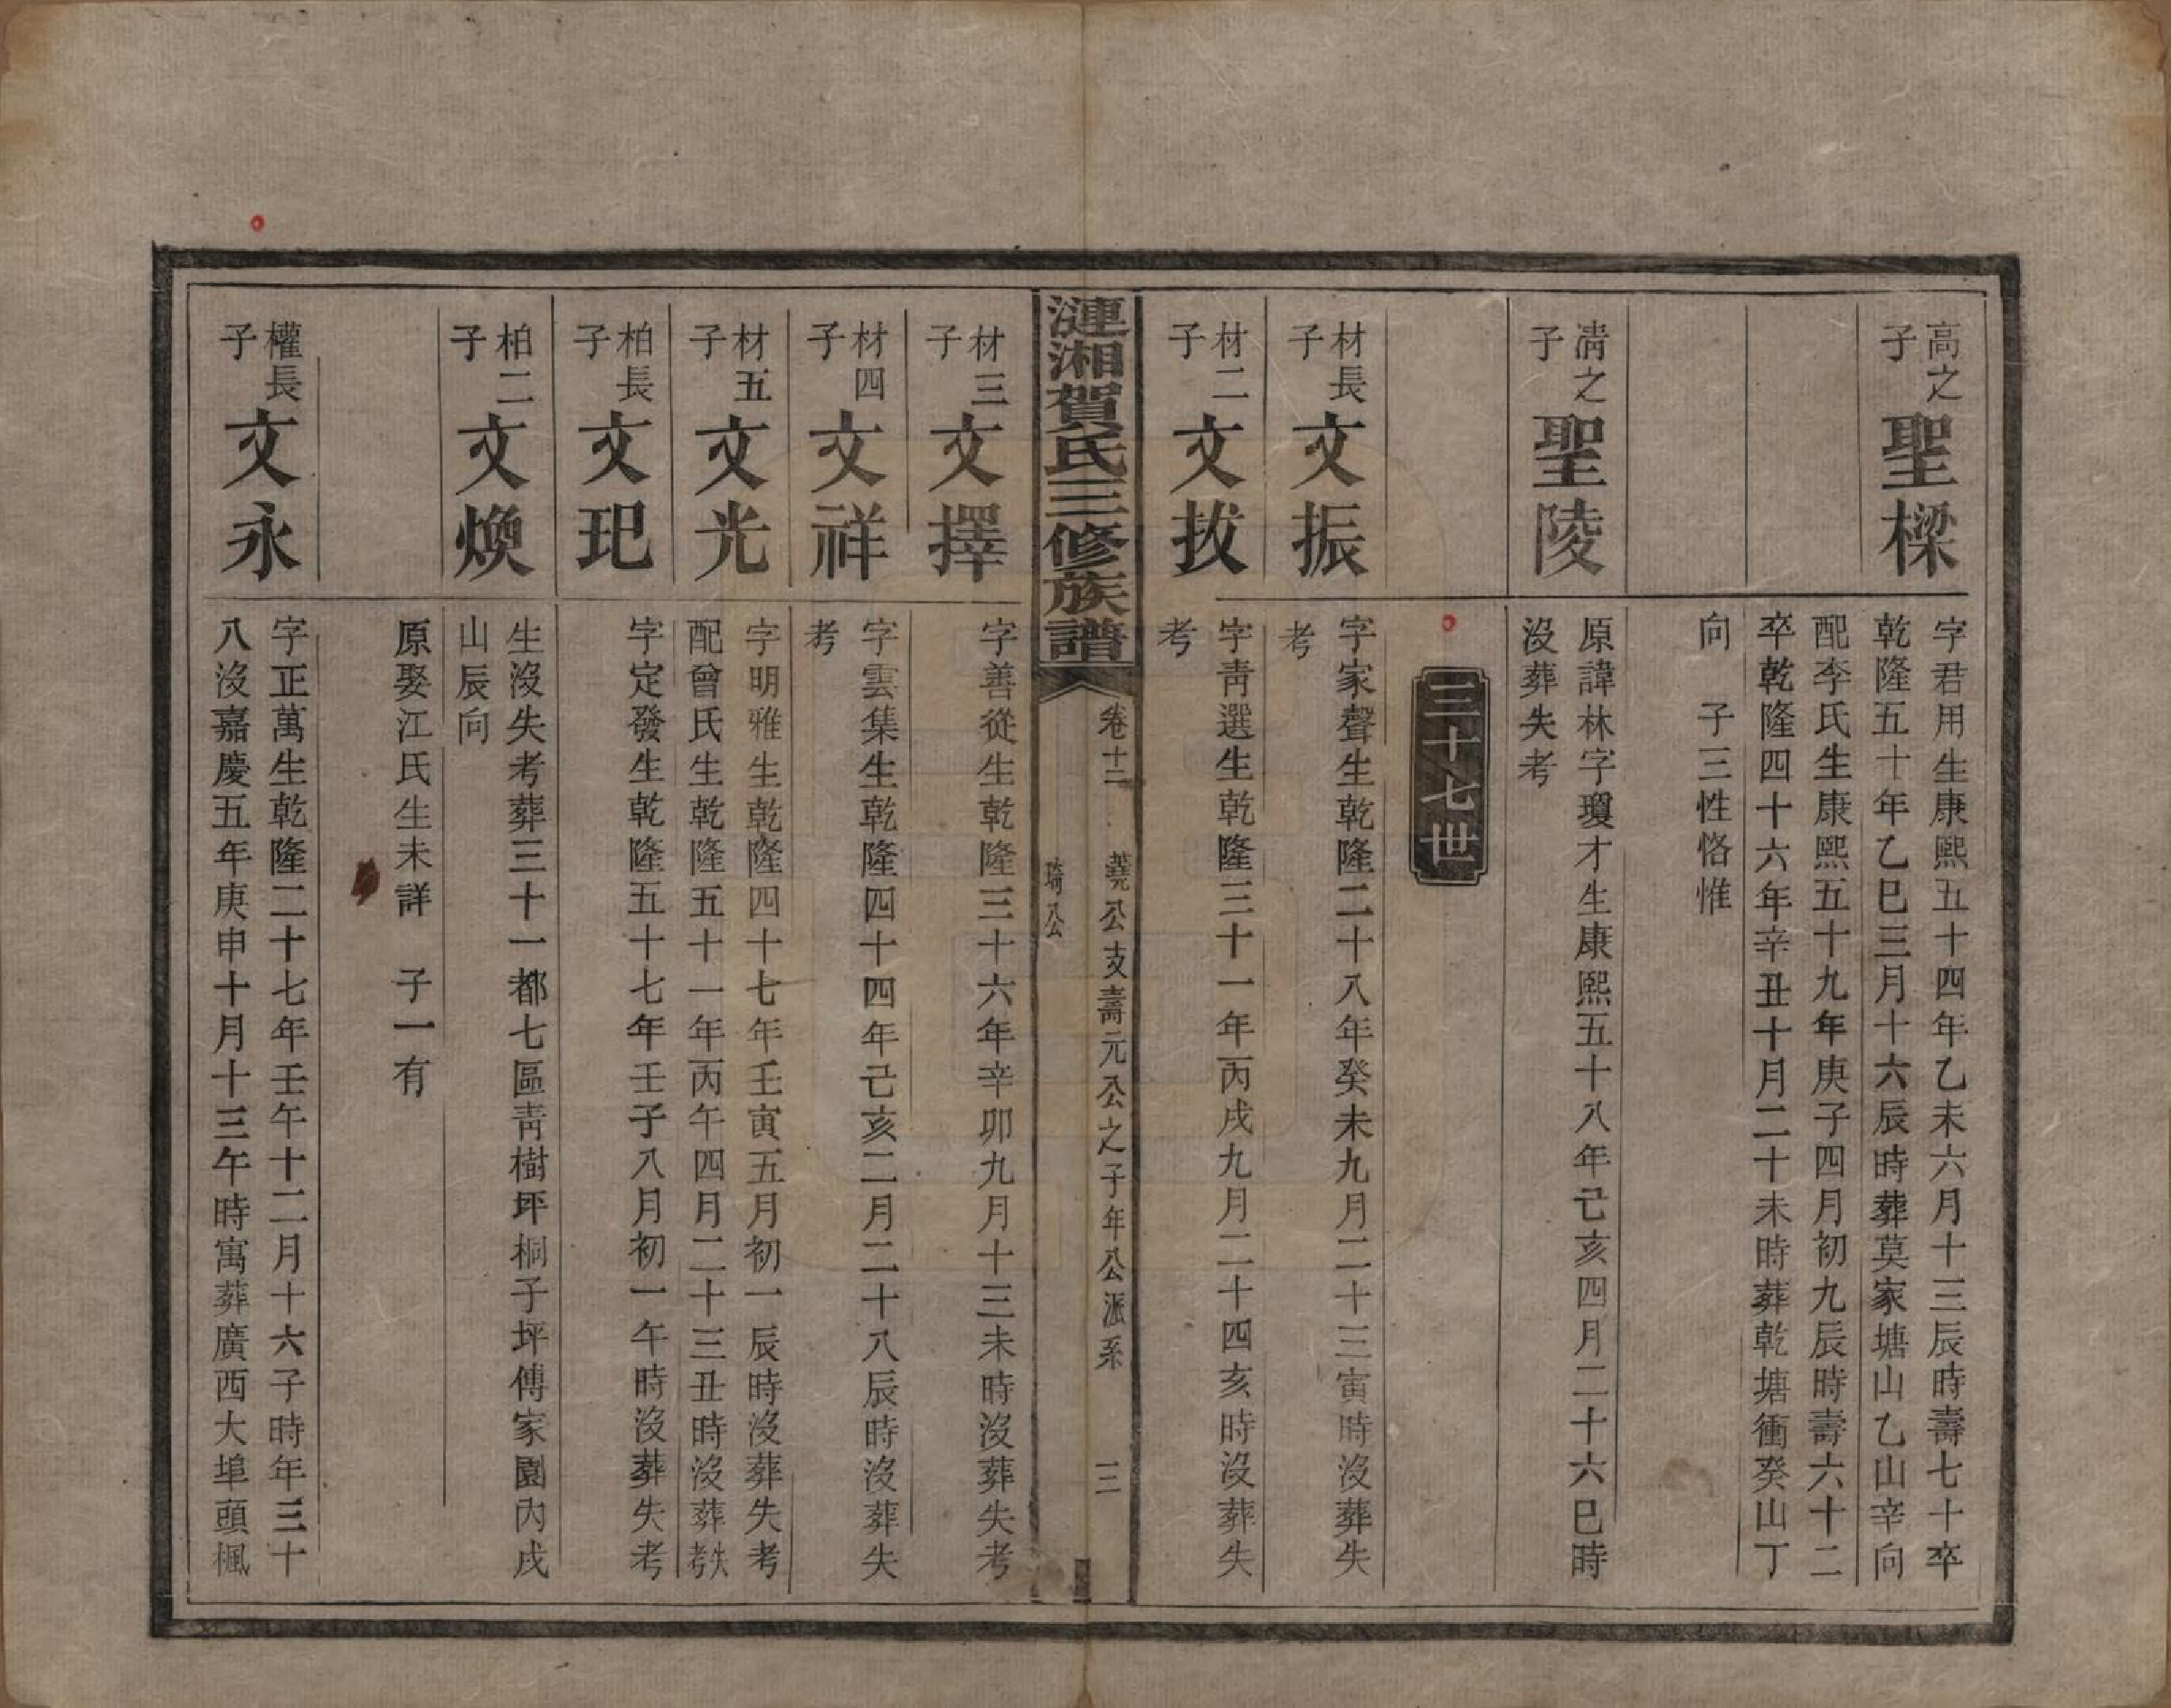 高之子 聖樑
字君用生康熙五十四年乙未六月十三辰時壽七十卒
乾隆五十年乙巳三月十六辰時葬莫家塘山乙山辛向
配李氏生康熙五十九年庚子四月初九辰時壽六十二
卒乾隆四十六年辛丑十月二十未時葬乾塘衝癸山丁
向　子三性恪惟
淸之子 聖陵
原諱林字瓊才生康熙五十八年己亥四月二十六巳時
沒葬失考
三十七世
材長子 文振
字家聲生乾隆二十八年癸未九月二十三寅時沒葬失
考
材二子 文拔
字靑選生乾隆三十一年丙戌九月二十四亥時沒葬失
考
漣湘賀氏三修族譜
卷十二　堯公支壽元公之子年公派系　三
琦公
材三子 文擇
字善從生乾隆三十六年辛卯九月十三未時沒葬失考
材四子 文祥
字雲集生乾隆四十四年己亥二月二十八辰時沒葬失
考
材五子 文光
字明雅生乾隆四十七年壬寅五月初一辰時沒葬失考
配曾氏生乾隆五十一年丙午四月二十三丑時沒葬失考
柏長子 文玘
字定發生乾隆五十七年壬子八月初一午時沒葬失考
柏二子 文煥
生沒失考葬三十一都七區靑樹坪桐子坪傅家園內戌
山辰向
原娶江氏生未詳　子一有
權長子 文永
字正萬生乾隆二十七年壬午十二月十六子時年三十
八沒嘉慶五年庚申十月十三午時寓葬廣西大埠頭楓